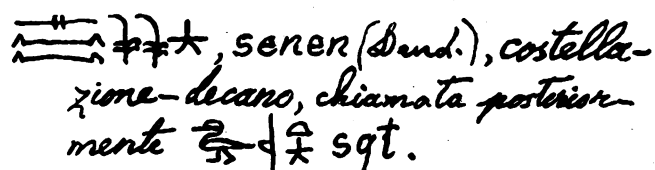 , senen (Dend.), costella-
zione-decano, chiamata posterior-
mente sqt.